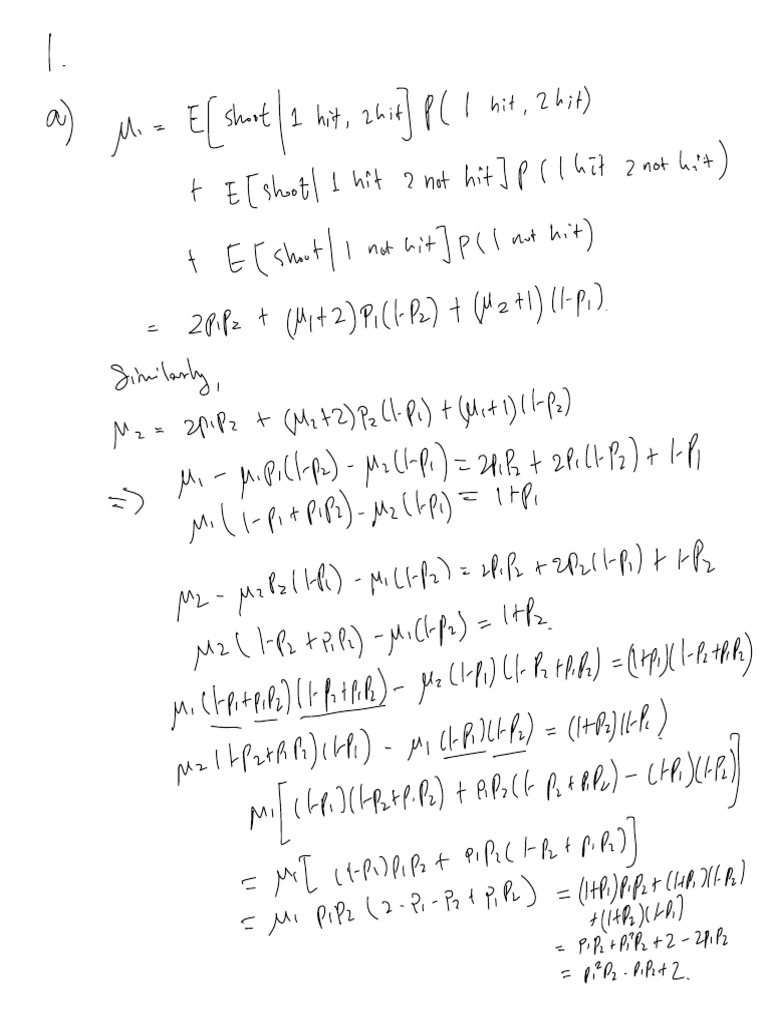 1.
a) μ₁ = E[shoot | 1 hit, 2 hit] P(1 hit, 2 hit)
+ E[shoot | 1 hit 2 not hit] P(1 hit 2 not hit)
+ E[shoot | 1 not hit] P(1 not hit)
= 2P₁P₂ + (μ₁+2)P₁(1-P₂) + (μ₂+1)(1-P₁).
Similarly,
μ₂ = 2P₁P₂ + (μ₂+2)P₂(1-P₁) + (μ₁+1)(1-P₂)
=> μ₁ - μ₁P₁(1-P₂) - μ₂(1-P₁) = 2P₁P₂ + 2P₁(1-P₂) + 1-P₁
μ₁(1-P₁+P₁P₂) - μ₂(1-P₁) = 1+P₁
μ₂ - μ₂P₂(1-P₁) - μ₁(1-P₂) = 2P₁P₂ + 2P₂(1-P₁) + 1-P₂
μ₂(1-P₂+P₁P₂) - μ₁(1-P₂) = 1+P₂.
μ₁(1-P₁+P₁P₂)(1-P₂+P₁P₂) - μ₂(1-P₁)(1-P₂+P₁P₂) = (1+P₁)(1-P₂+P₁P₂)
μ₂(1-P₂+P₁P₂)(1-P₁) - μ₁(1-P₁)(1-P₂) = (1+P₂)(1-P₁)
μ₁[(1-P₁)(1-P₂+P₁P₂) + P₁P₂(1-P₂+P₁P₂) - (1-P₁)(1-P₂)]
= μ₁[(1-P₁)P₁P₂ + P₁P₂(1-P₂+P₁P₂)]
= μ₁ P₁P₂(2-P₁-P₂+P₁P₂) = (1+P₁)P₁P₂ + (1+P₁)(1-P₂)
+(1+P₂)(1-P₁)
= P₁P₂ + P₁²P₂ + 2 - 2P₁P₂
= P₁²P₂ - P₁P₂ + 2.